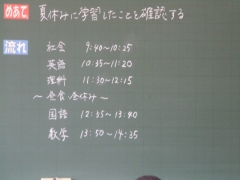 めあて 夏休みに学習したことを確認する
流れ
社会 9:40~10:25
英語 10:35~11:20
理科 11:30~12:15
~ 昼食・昼休み ~
国語 12:55~13:40
数学 13:50~14:35